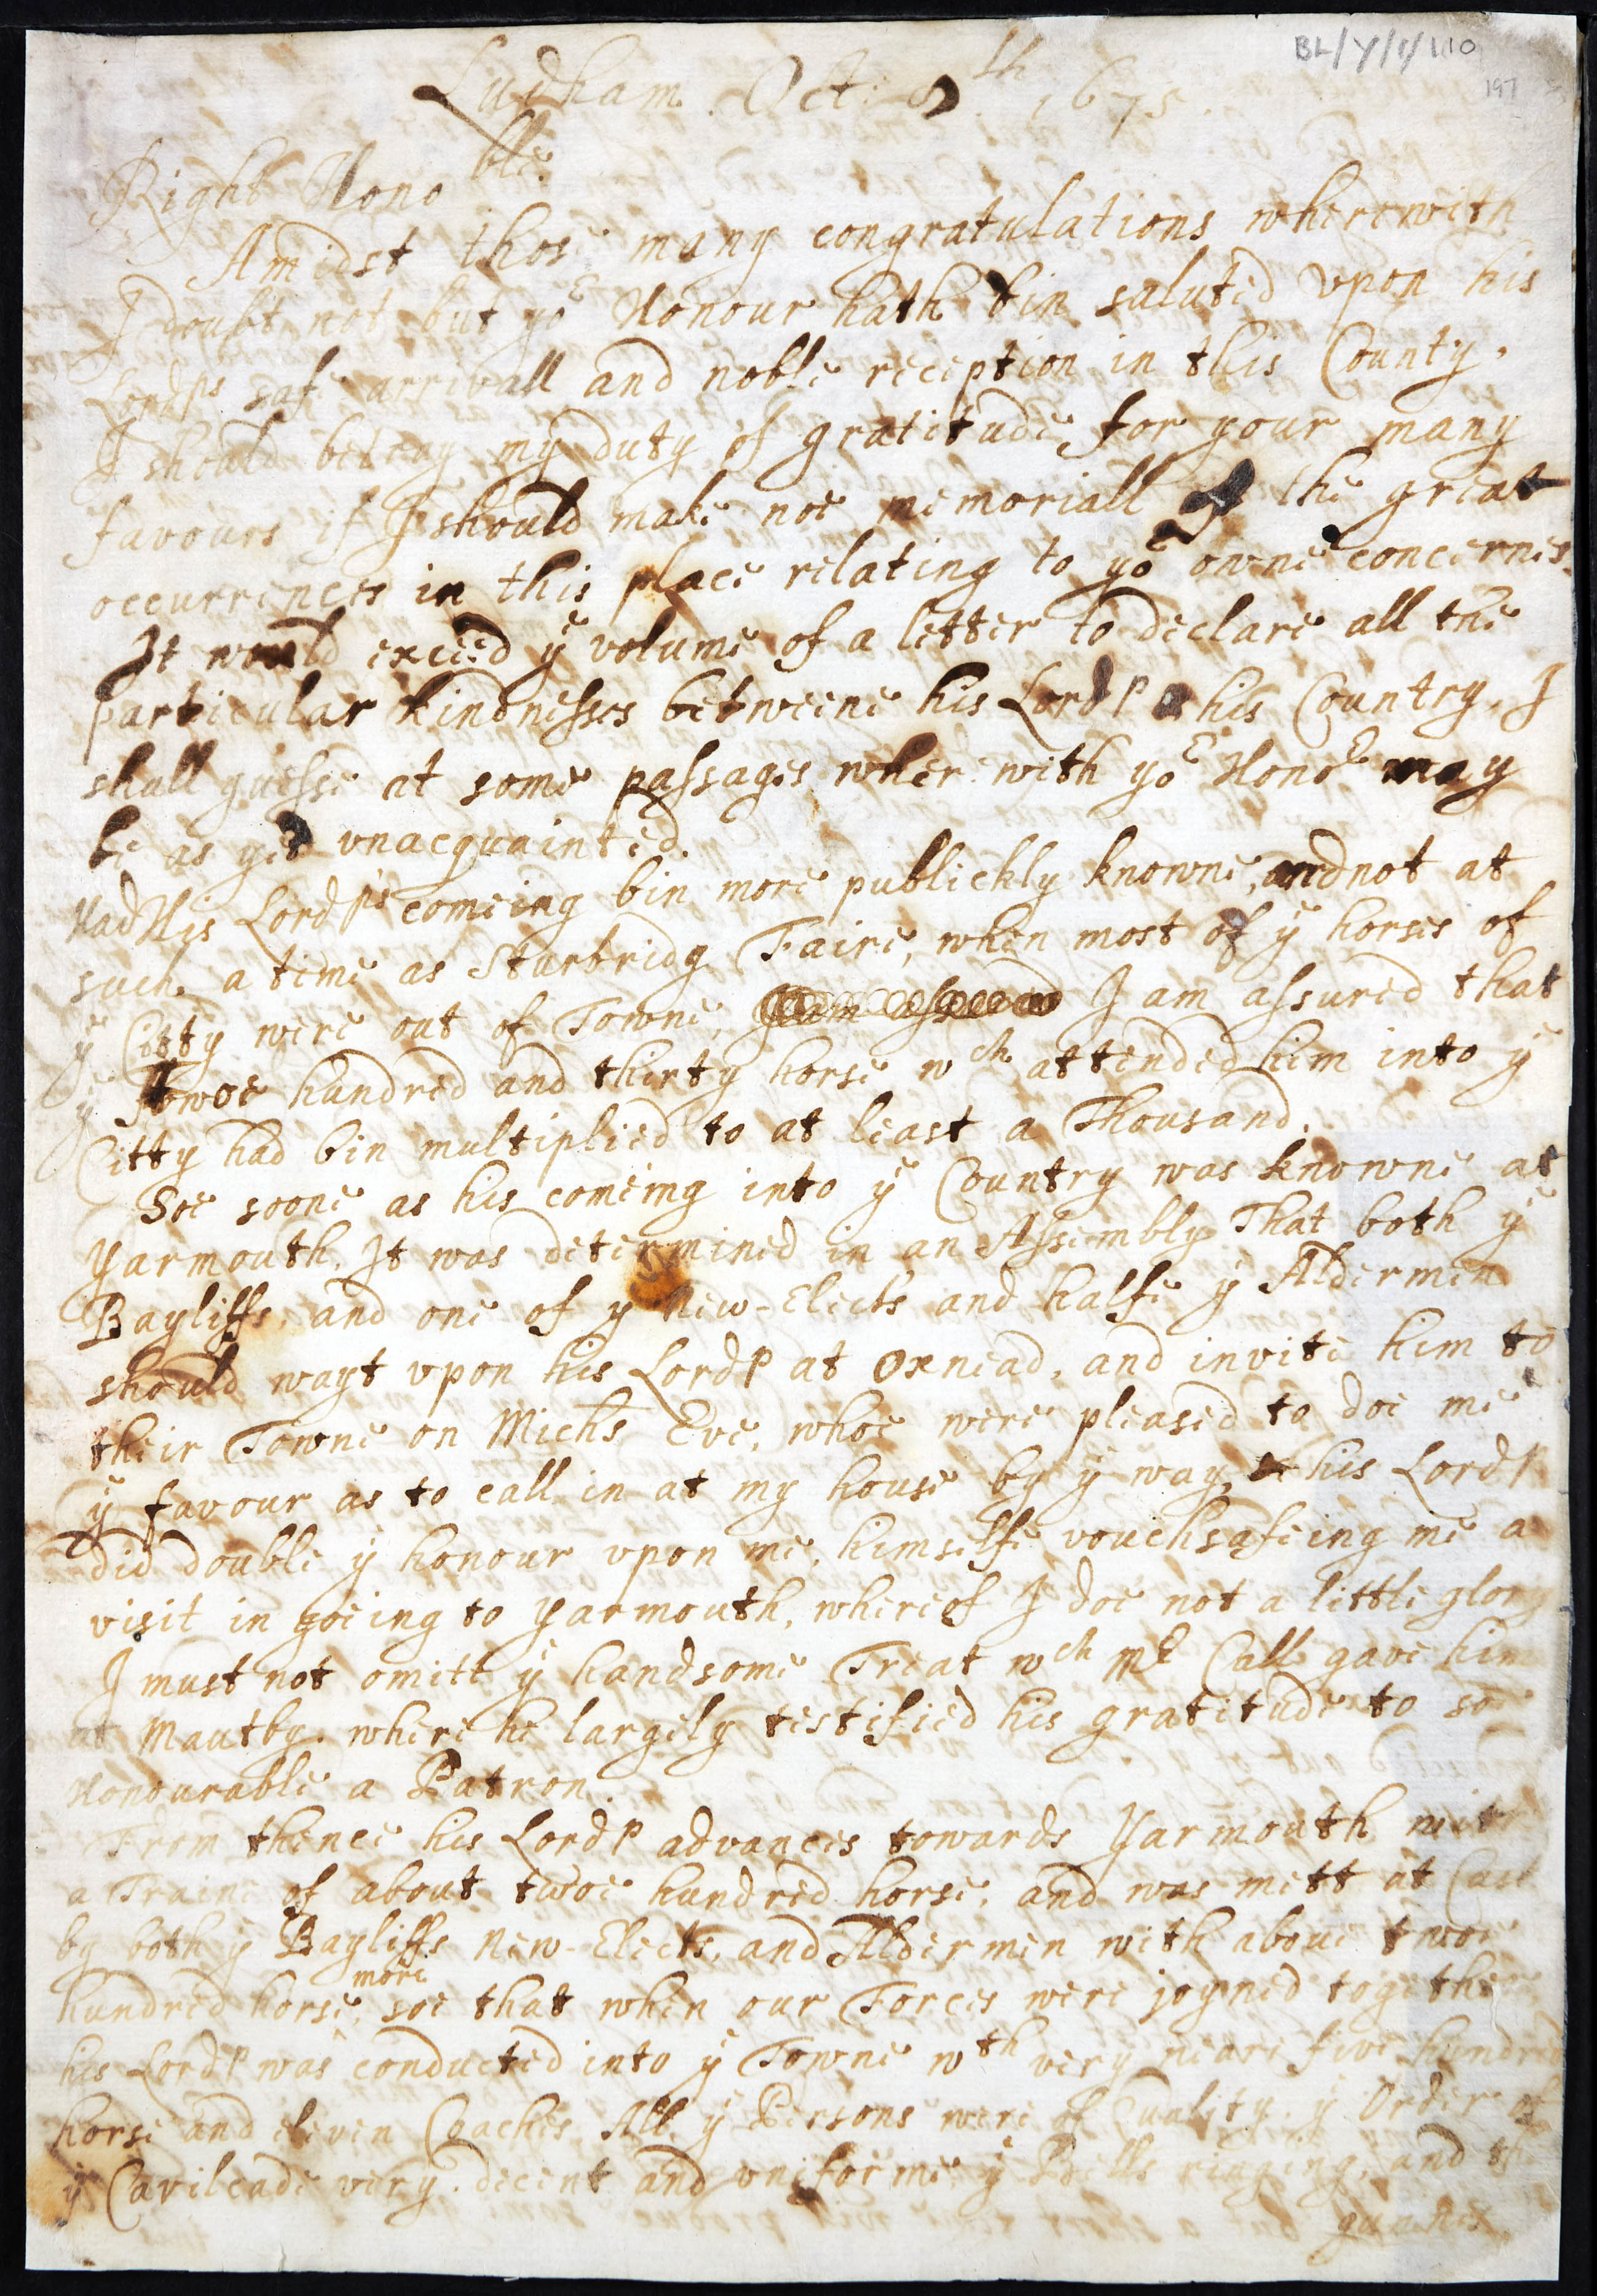 BL/Y/1/110
197
Ludham Oct: th 1675
Right Hono ble
Amidst those many congratulations wherewith
I doubt not but yor Honour hath bin saluted vpon his
Lordps safe arrivall and noble reception in this County,
I should betray my duty of gratitude for your many
favours if I should make noe memoriall of the great
occurrences in this place relating to yor owne concernes.
It would exceed ye volume of a letter to declare all the
particular kindnesses betweene his Lordp & his Country, I
shall guesse at some passages wherewith yor Honor may
be as yet vnacquainted.
Had His Lordps comeing bin more publickly knowne, and not at
such a time as Sturbridg Faire, when most of ye horses of
ye Citty were out of Towne, I am assured that
ye twoe hundred and thirty horse wch attended him into ye
Citty had bin multiplied to at least a Thousand.
Soe soone as his comeing into ye Country was knowne at
Yarmouth, It was determined in an Assembly That both ye
Bayliffs, and one of ye New-Elects and halfe ye Aldermen
should wayt vpon his Lordp at Oxnead, and invite him to
their Towne on Michs Eve, whoe were pleased to doe me
ye favour as to call in at my house by ye way, & his Lordp
did double ye honour vpon me, himselfe vouchsafeing me a
visit in goeing to Yarmouth, whereof I doe not a little glory
I must not omitt ye handsome Treat wch Mr Call gave him
at Mautby, where he largely testified his gratitude to so
Honourable a Patron.
From thence his Lordp advances towards Yarmouth with
a Traine of about twoe hundred horse, and was mett at
by both ye Bayliffs New-Elects, and Aldermen with above twoe
more
hundred horse, soe that when our Forces were joyned together
his Lordp was conducted into ye Towne wth very neare five hundred
horse and eleven Coaches, All ye Persons were of Quality, ye Order of
ye Cavileade very decent and vniforme ye Bells ringing, and the
gunnes